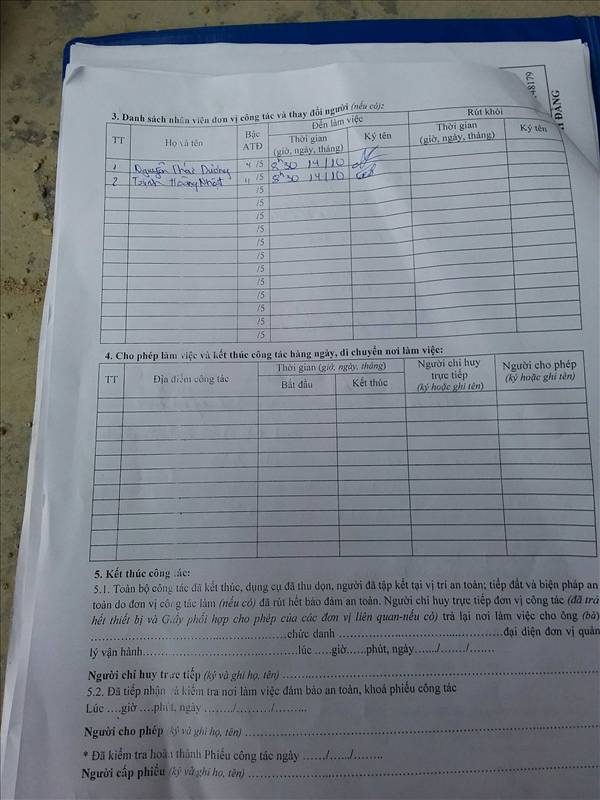 48179
ĐẢNG
3. Danh sách nhân viên đơn vị công tác và thay đổi người (nếu có):
TT Họ và tên Bậc ATĐ Đến làm việc Rút khỏi
Thời gian (giờ, ngày, tháng) Ký tên Thời gian (giờ, ngày, tháng) Ký tên
1 Nguyễn Thái Dương 4 /5 8h30 14/10
2 Trịnh Hoàng Nhật 4 /5 8h30 14/10
/5
/5
/5
/5
/5
/5
/5
/5
/5
/5
/5
/5
4. Cho phép làm việc và kết thúc công tác hàng ngày, di chuyển nơi làm việc:
TT Địa điểm công tác Thời gian (giờ, ngày, tháng) Người chỉ huy trực tiếp (ký hoặc ghi tên) Người cho phép (ký hoặc ghi tên)
Bắt đầu Kết thúc
5. Kết thúc công tác:
5.1. Toàn bộ công tác đã kết thúc, dụng cụ đã thu dọn, người đã tập kết tại vị trí an toàn; tiếp đất và biện pháp an
toàn do đơn vị công tác làm (nếu có) đã rút hết bảo đảm an toàn. Người chỉ huy trực tiếp đơn vị công tác (đã trả
hết thiết bị và Giấy phối hợp cho phép của các đơn vị liên quan-nếu có) trả lại nơi làm việc cho ông (bà)
……………………chức danh ……………………đại diện đơn vị quản
lý vận hành……………………lúc ….giờ…..phút, ngày……./……./…….
Người chỉ huy trực tiếp (ký và ghi họ, tên) ……………………
5.2. Đã tiếp nhận và kiểm tra nơi làm việc đảm bảo an toàn, khoá phiếu công tác
Lúc ….giờ ….phút, ngày ……../………./……..
Người cho phép (ký và ghi họ, tên) ……………………
* Đã kiểm tra hoàn thành Phiếu công tác ngày ……/……/……..
Người cấp phiếu (ký và ghi họ, tên) ……………………